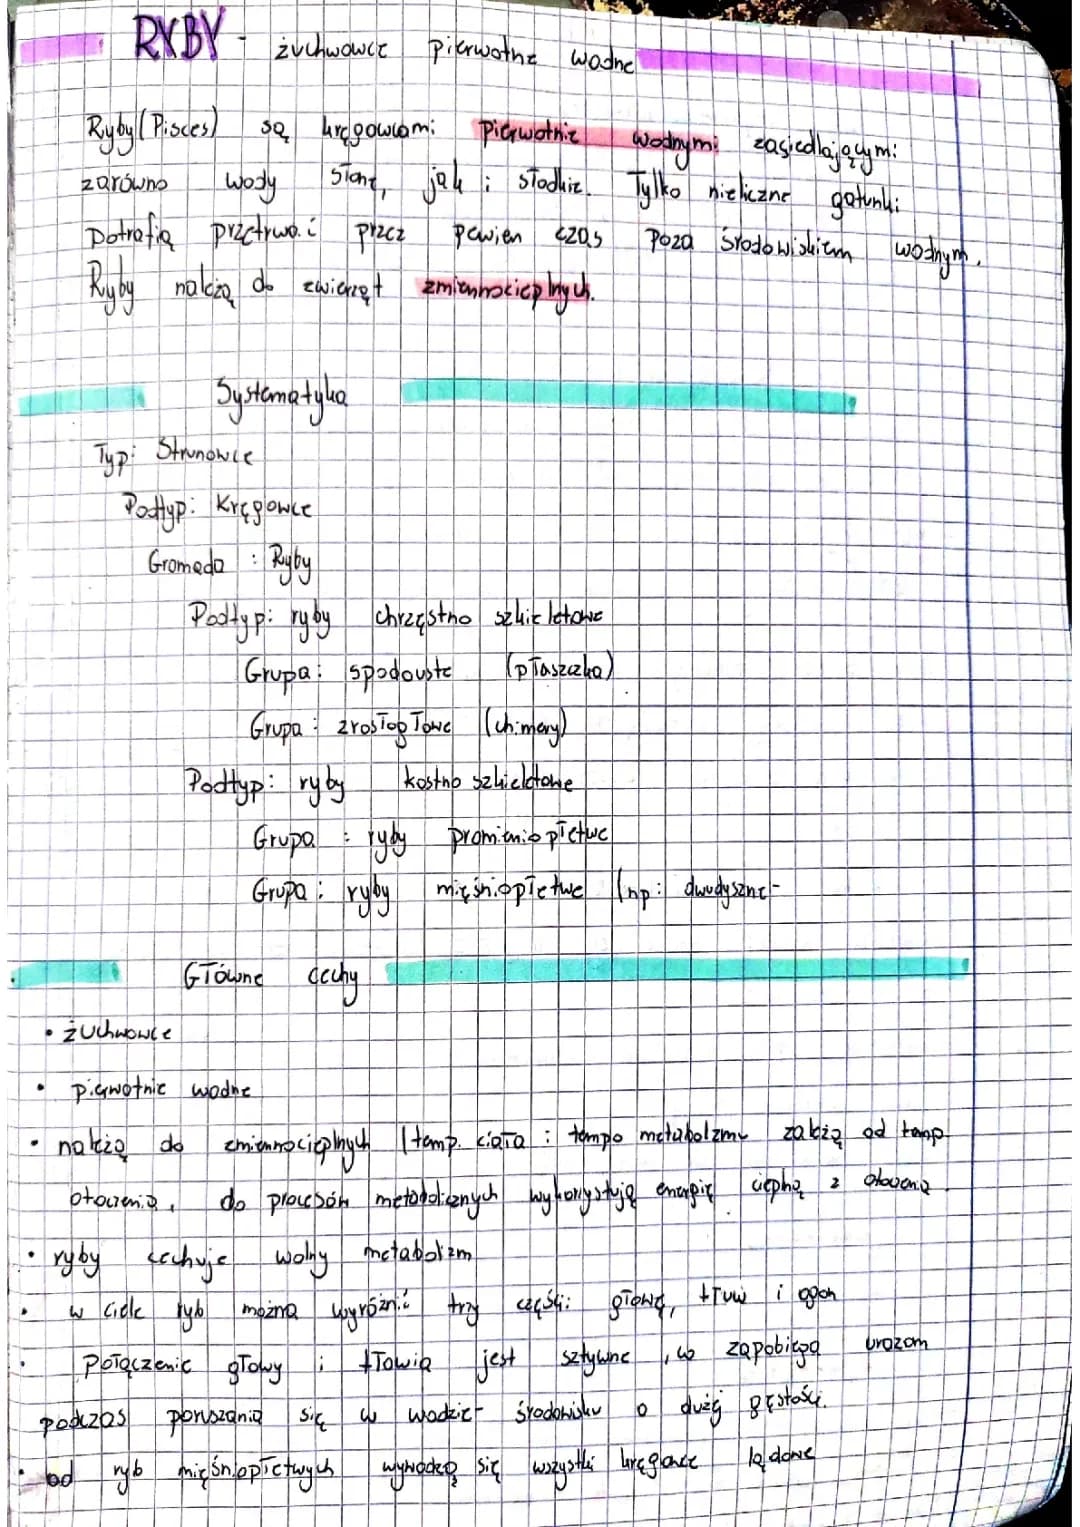 RYBY - żuchwowce pierwotne wodne
Ryby (Pisces) są kręgowcami pierwotnie wodnymi zasiedlającymi
zarówno wody słone, jak i słodkie. Tylko nieliczne gatunki
potrafią przetrwać przez pewien czas poza środowiskiem wodnym.
Ryby należą do zwierząt zmiennocieplnych.
Systematyka
Typ: Strunowce
Podtyp: Kręgowce
Gromada : Ryby
Podtyp: ryby chrzęstno szkieletowe
Grupa: spodouste (płaszczka)
Grupa : zrosłogłowe (chimery)
Podtyp: ryby kostno szkieletowe
Grupa : ryby promieniopłetwe
Grupa : ryby mięśniopłetwe (np: dwudyszne-
Główne cechy
• żuchwowce
• pierwotnie wodne
• należą do zmiennocieplnych (temp. ciała i tempo metabolizmu zależą od temp.
otoczenia, do procesów metabolicznych wykorzystują energię cieplną z otoczenia.
• ryby cechuje wolny metabolizm
• w ciele ryb można wyróżnić trzy części: głowę, tłuw i ogon
• połączenie głowy i tłowia jest sztywne, co zapobiega urazom
podczas poruszania się w wodzie- środowisku o dużej gęstości.
• od ryb mięśniopłetwych wywodzą się wszystkie kręgowce lądowe